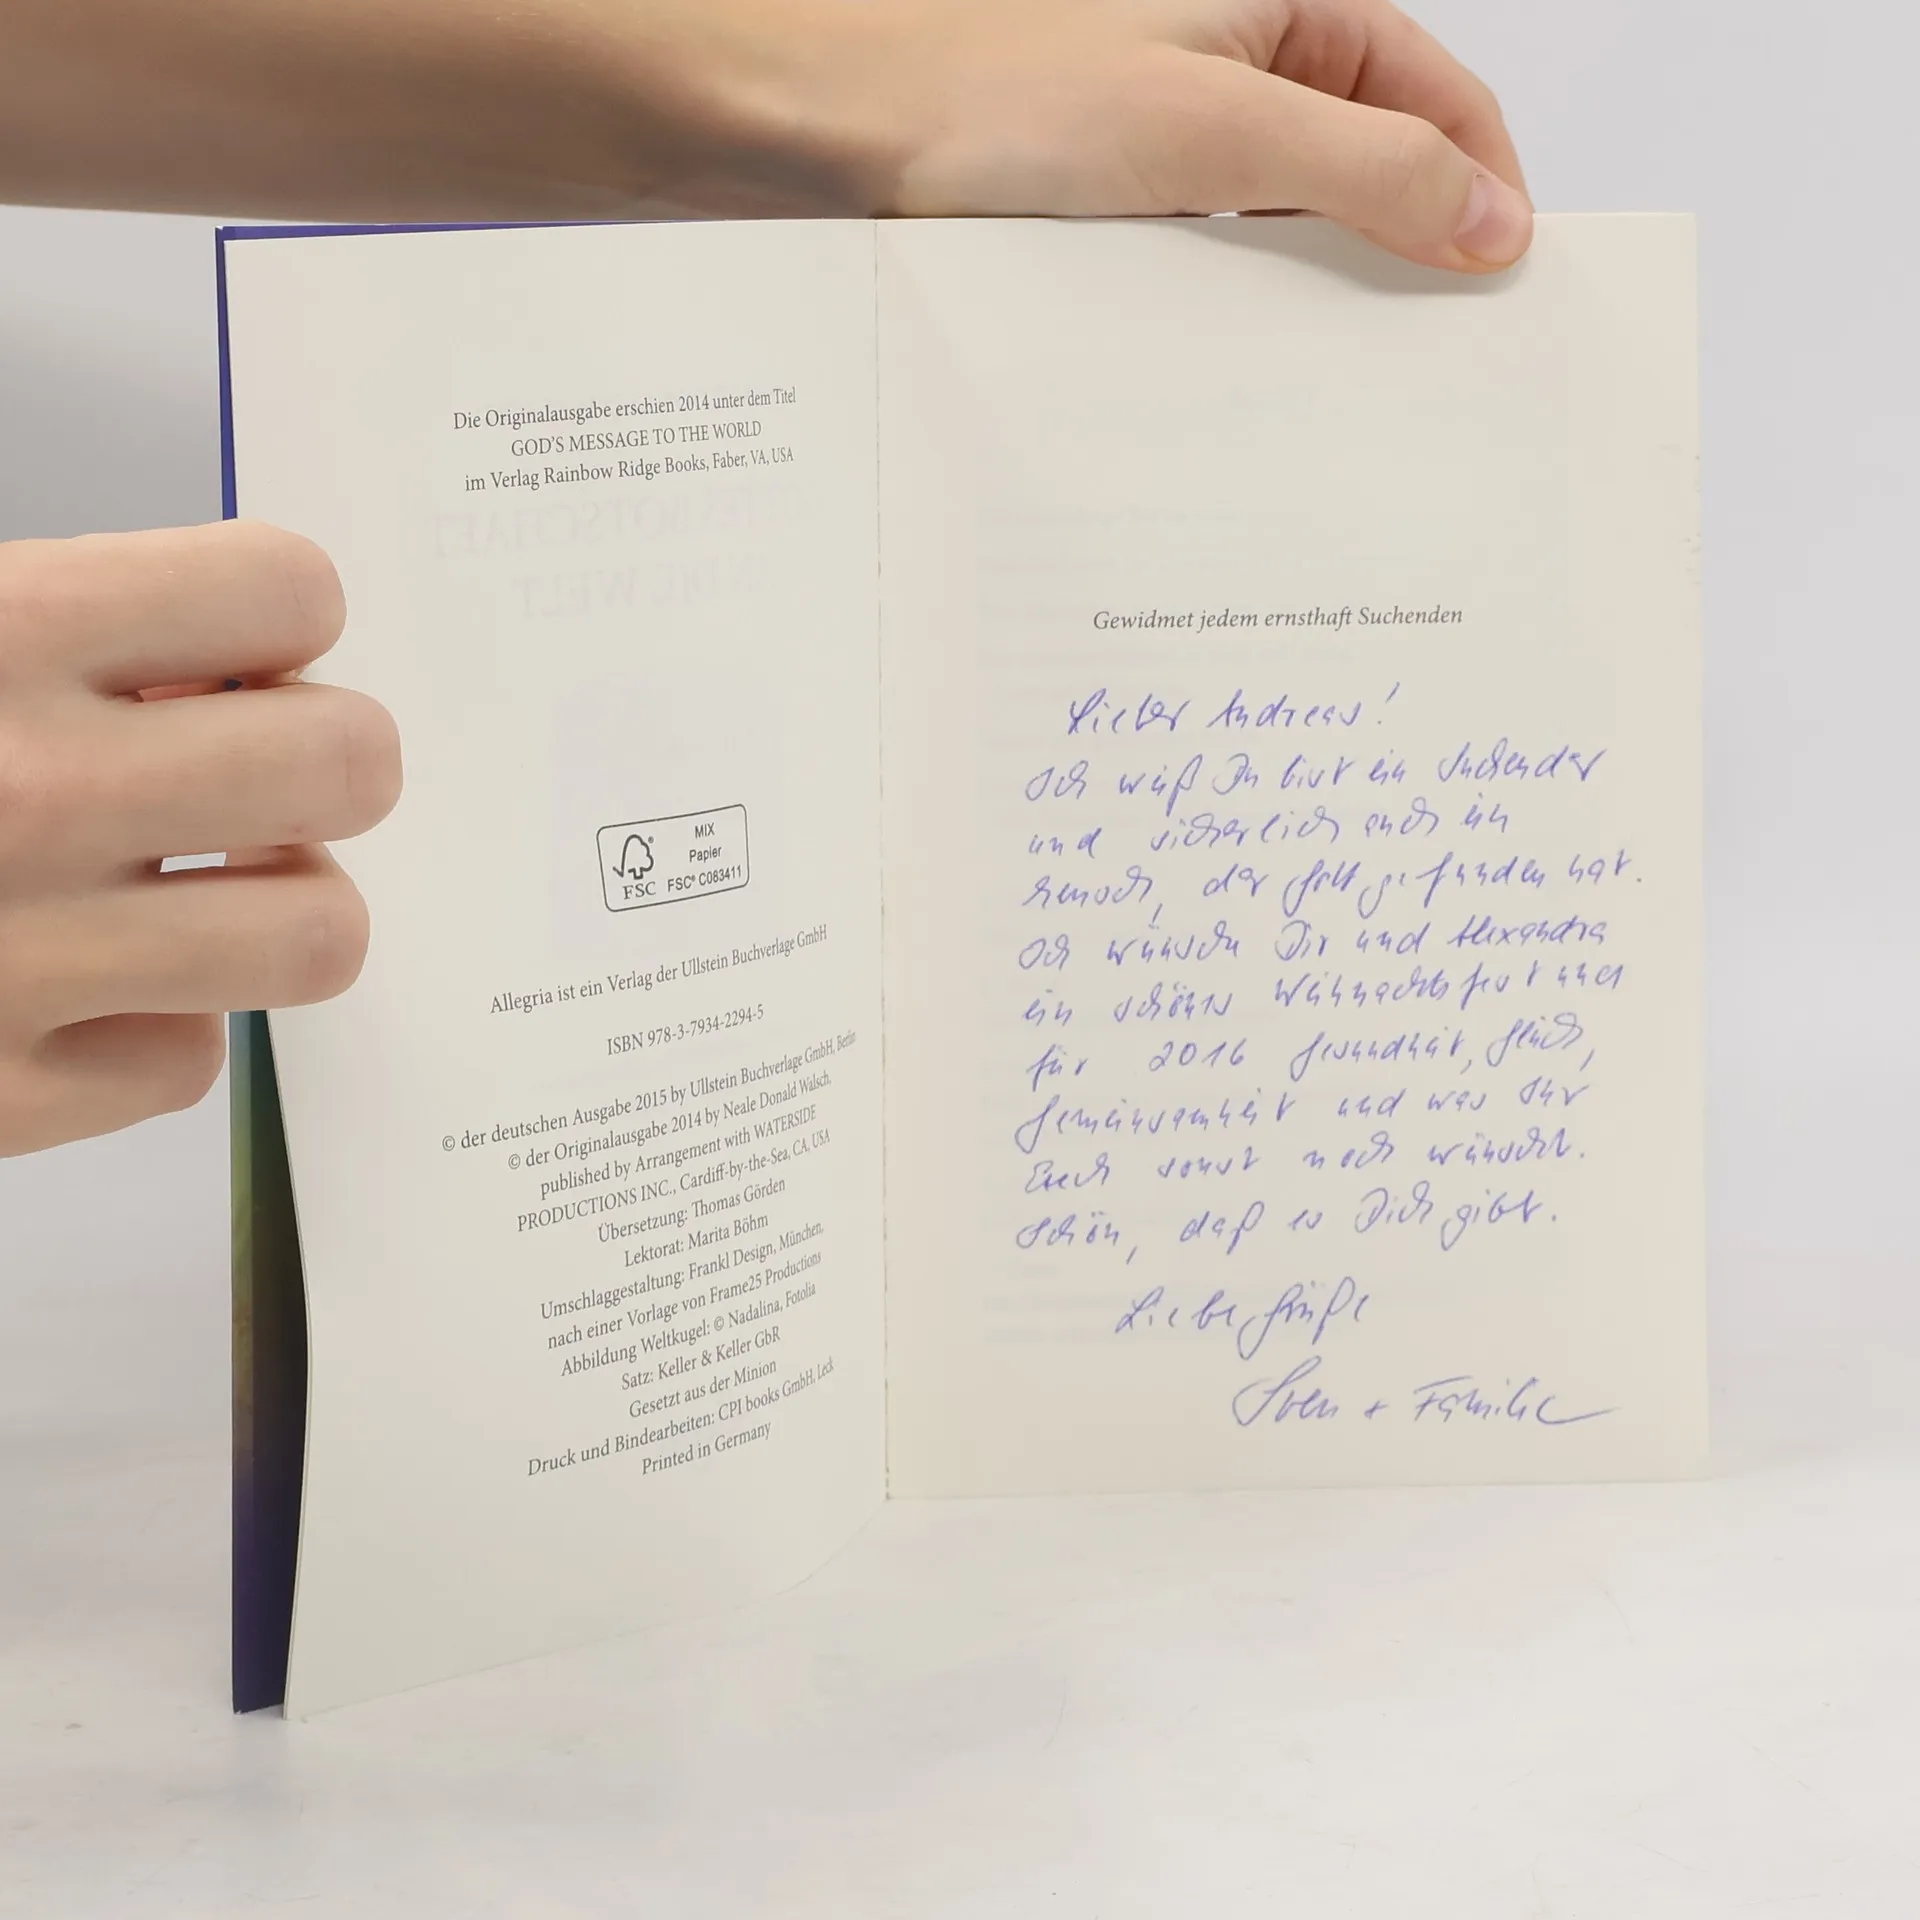 Die Originalausgabe erschien 2014 unter dem Titel
GOD'S MESSAGE TO THE WORLD
im Verlag Rainbow Ridge Books, Faber, VA, USA
MIX
Papier
FSC® C083411
FSC
Allegria ist ein Verlag der Ullstein Buchverlage GmbH
ISBN 978-3-7934-2294-5
© der deutschen Ausgabe 2015 by Ullstein Buchverlage GmbH, Berlin
© der Originalausgabe 2014 by Neale Donald Walsch,
published by Arrangement with WATERSIDE
PRODUCTIONS INC., Cardiff-by-the-Sea, CA, USA
Übersetzung: Thomas Görden
Lektorat: Marita Böhm
Umschlaggestaltung: Frankl Design, München,
nach einer Vorlage von Frame25 Productions
Abbildung Weltkugel: © Nadalina, Fotolia
Satz: Keller & Keller GbR
Gesetzt aus der Minion
Druck und Bindearbeiten: CPI books GmbH, Leck
Printed in Germany
Gewidmet jedem ernsthaft Suchenden
Lieber Andreas!
Ich weiß Du bist ein Suchender
und sicherlich auch ein
Mensch, der Gott gefunden hat.
Ich wünsche Dir und Alexandra
ein schönes Weihnachtsfest und
für 2016 Gesundheit, Glück,
Gemeinsamkeit und was Ihr
Euch sonst noch wünscht.
Schön, daß es Dich gibt.
Liebe Grüße
Sven + Familie